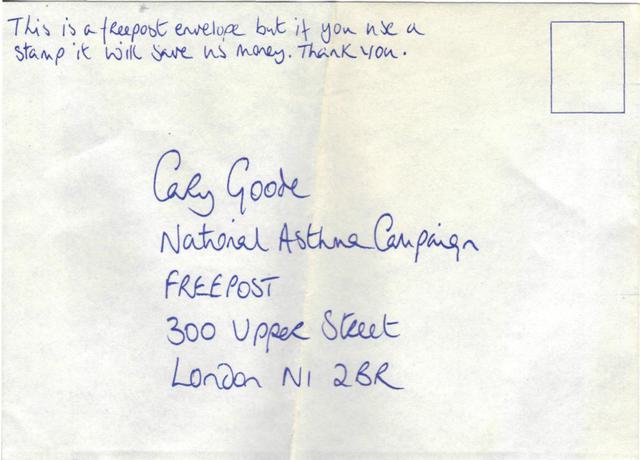 This is a freepost envelope but if you use a
stamp it will save us money. Thank you.
Cary Goode
National Asthma Campaign
FREEPOST
300 Upper Street
London N1 2BR